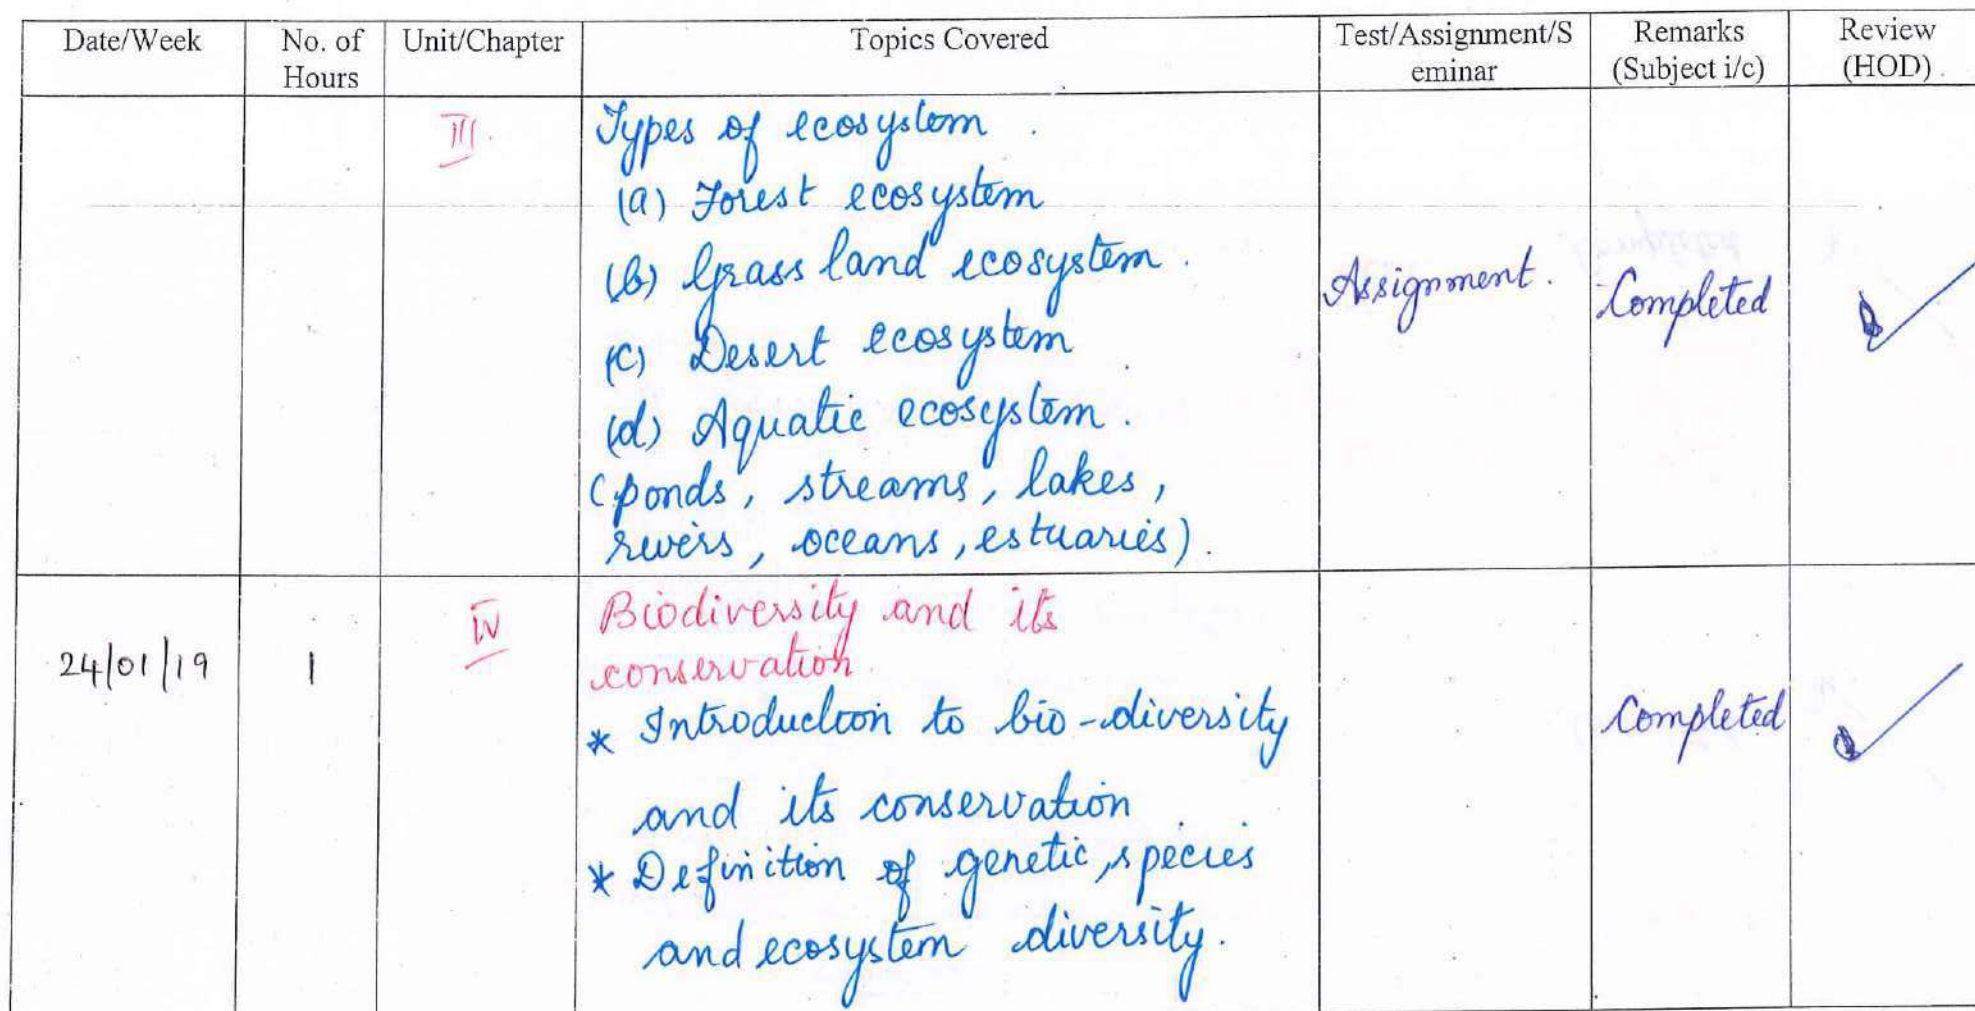 Date/Week No. of Hours Unit/Chapter Topics Covered Test/Assignment/S eminar Remarks (Subject i/c) Review (HOD)
III
Types of ecosystem.
(a) Forest ecosystem
(b) Grass land ecosystem.
(c) Desert ecosystem
(d) Aquatic ecosystem.
(ponds, streams, lakes,
rivers, oceans, estuaries).
Assignment.
Completed
24/01/19
1
IV
Biodiversity and its
conservation
* Introduction to bio-diversity
and its conservation
* Definition of genetic, species
and ecosystem diversity.
Completed